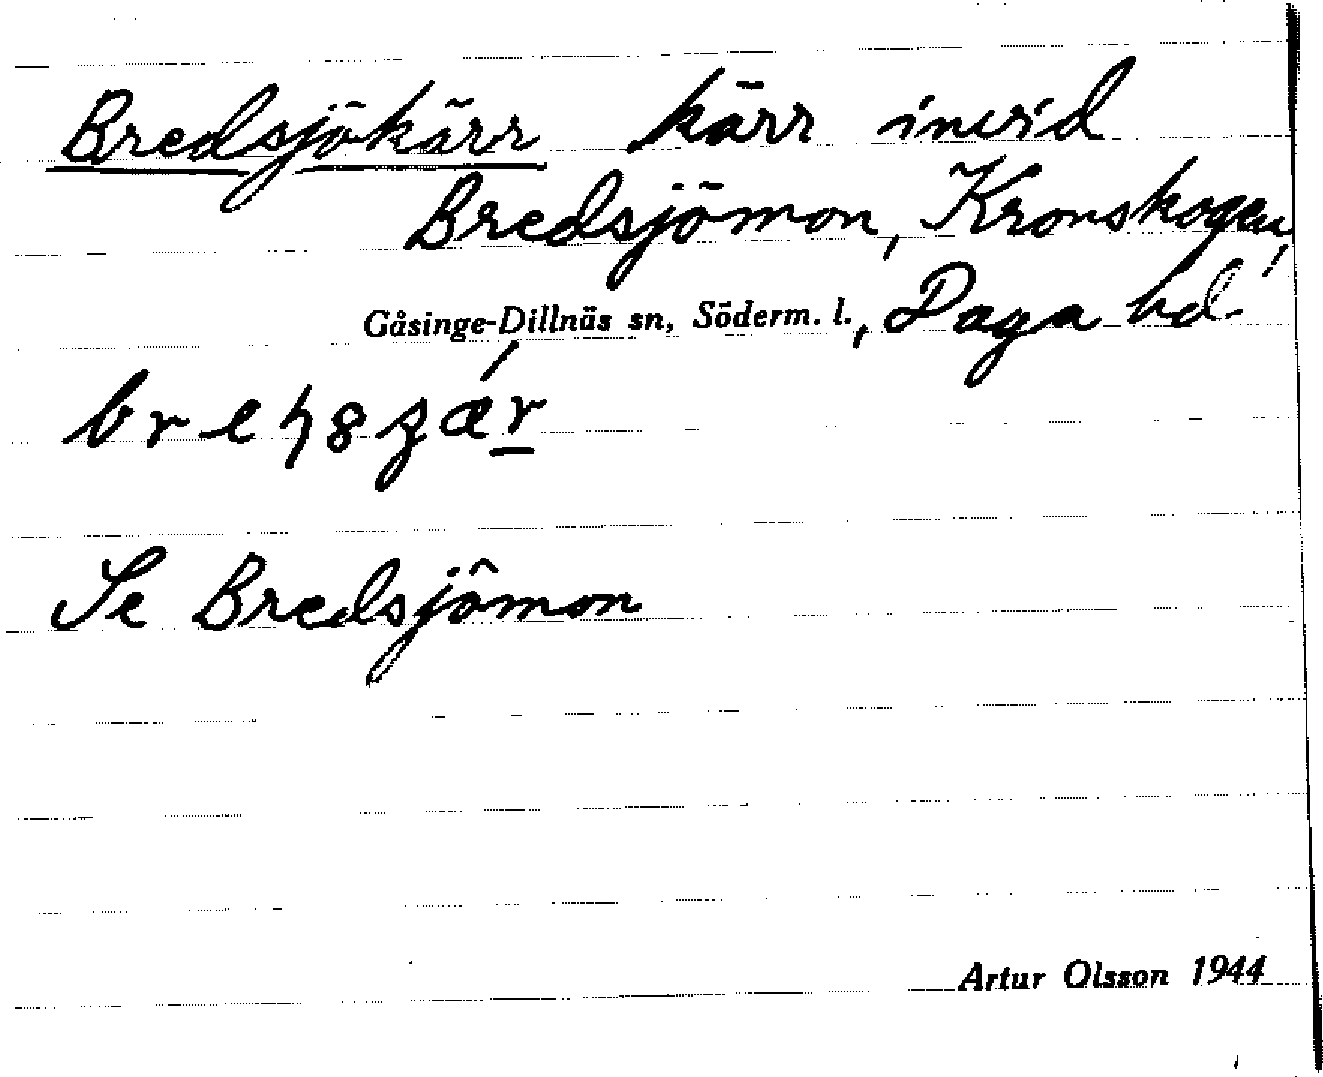 Bredsjökärr kärr invid
Bredsjömon, Kronskogen,
Gåsinge-Dillnäs sn, Söderm. l., Daga hd.
Se Bredsjömon
Artur Olsson 1944